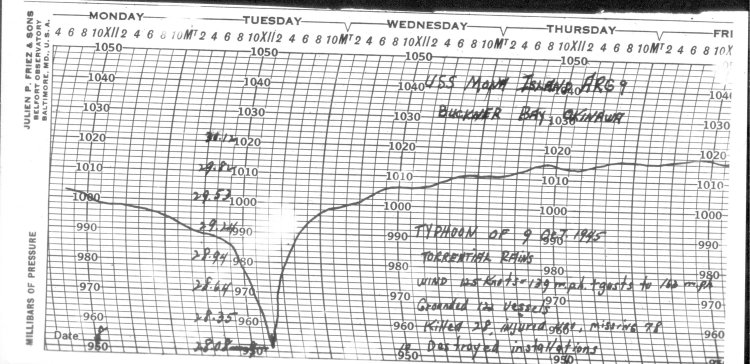 MONDAY TUESDAY WEDNESDAY THURSDAY FRI
4 6 8 10 XII 2 4 6 8 10 MT 2 4 6 8 10 XII 2 4 6 8 10 MT 2 4 6 8 10 XII 2 4 6 8 10 MT 2 4 6 8 10 XII 2 4 6 8 10 MT 2 4 6 8 10 X
JULIEN P. FRIEZ & SONS
BELFORT OBSERVATORY
BALTIMORE, MD., U.S.A.
MILLIBARS OF PRESSURE
1050 1050 1050 1050
1040 1040 1040 1040
USS MONA ISLAND ARG 9
1030 1030 1030 1030
BUCKNER BAY OKINAWA
1020 30.12 1020 1020 1020 1020
29.82 1010 1010 1010 1010
1000 29.53 1000 1000 1000 1000
990 29.24 990 990 990
TYPHOON OF 9 OCT 1945
980 28.94 980 980 980 980
TORRENTIAL RAINS
970 28.64 970 970 970
WIND 125 Knots - 139 m.ph. + gusts to 162 m.ph
Grounded vessels
960 28.35 960 960 960
Killed 28, injured missing 78
Date 8 9 10 Destroyed installations
950 28.08 950 950 950